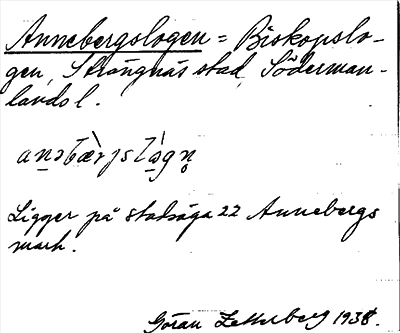 Annebergslogen = Biskopslo-
gen, Strängnäs stad, Söderman-
lands l.
Ligger på stadsäga 22 Annebergs
mark.
Göran Zetterberg 1938.